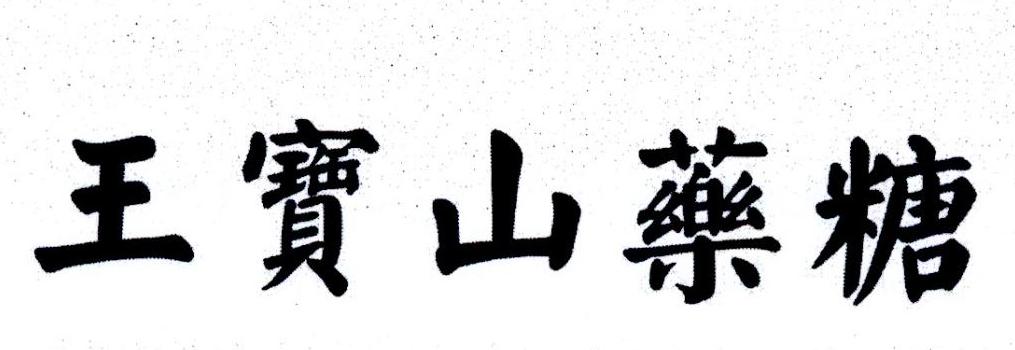 王寶山藥糖